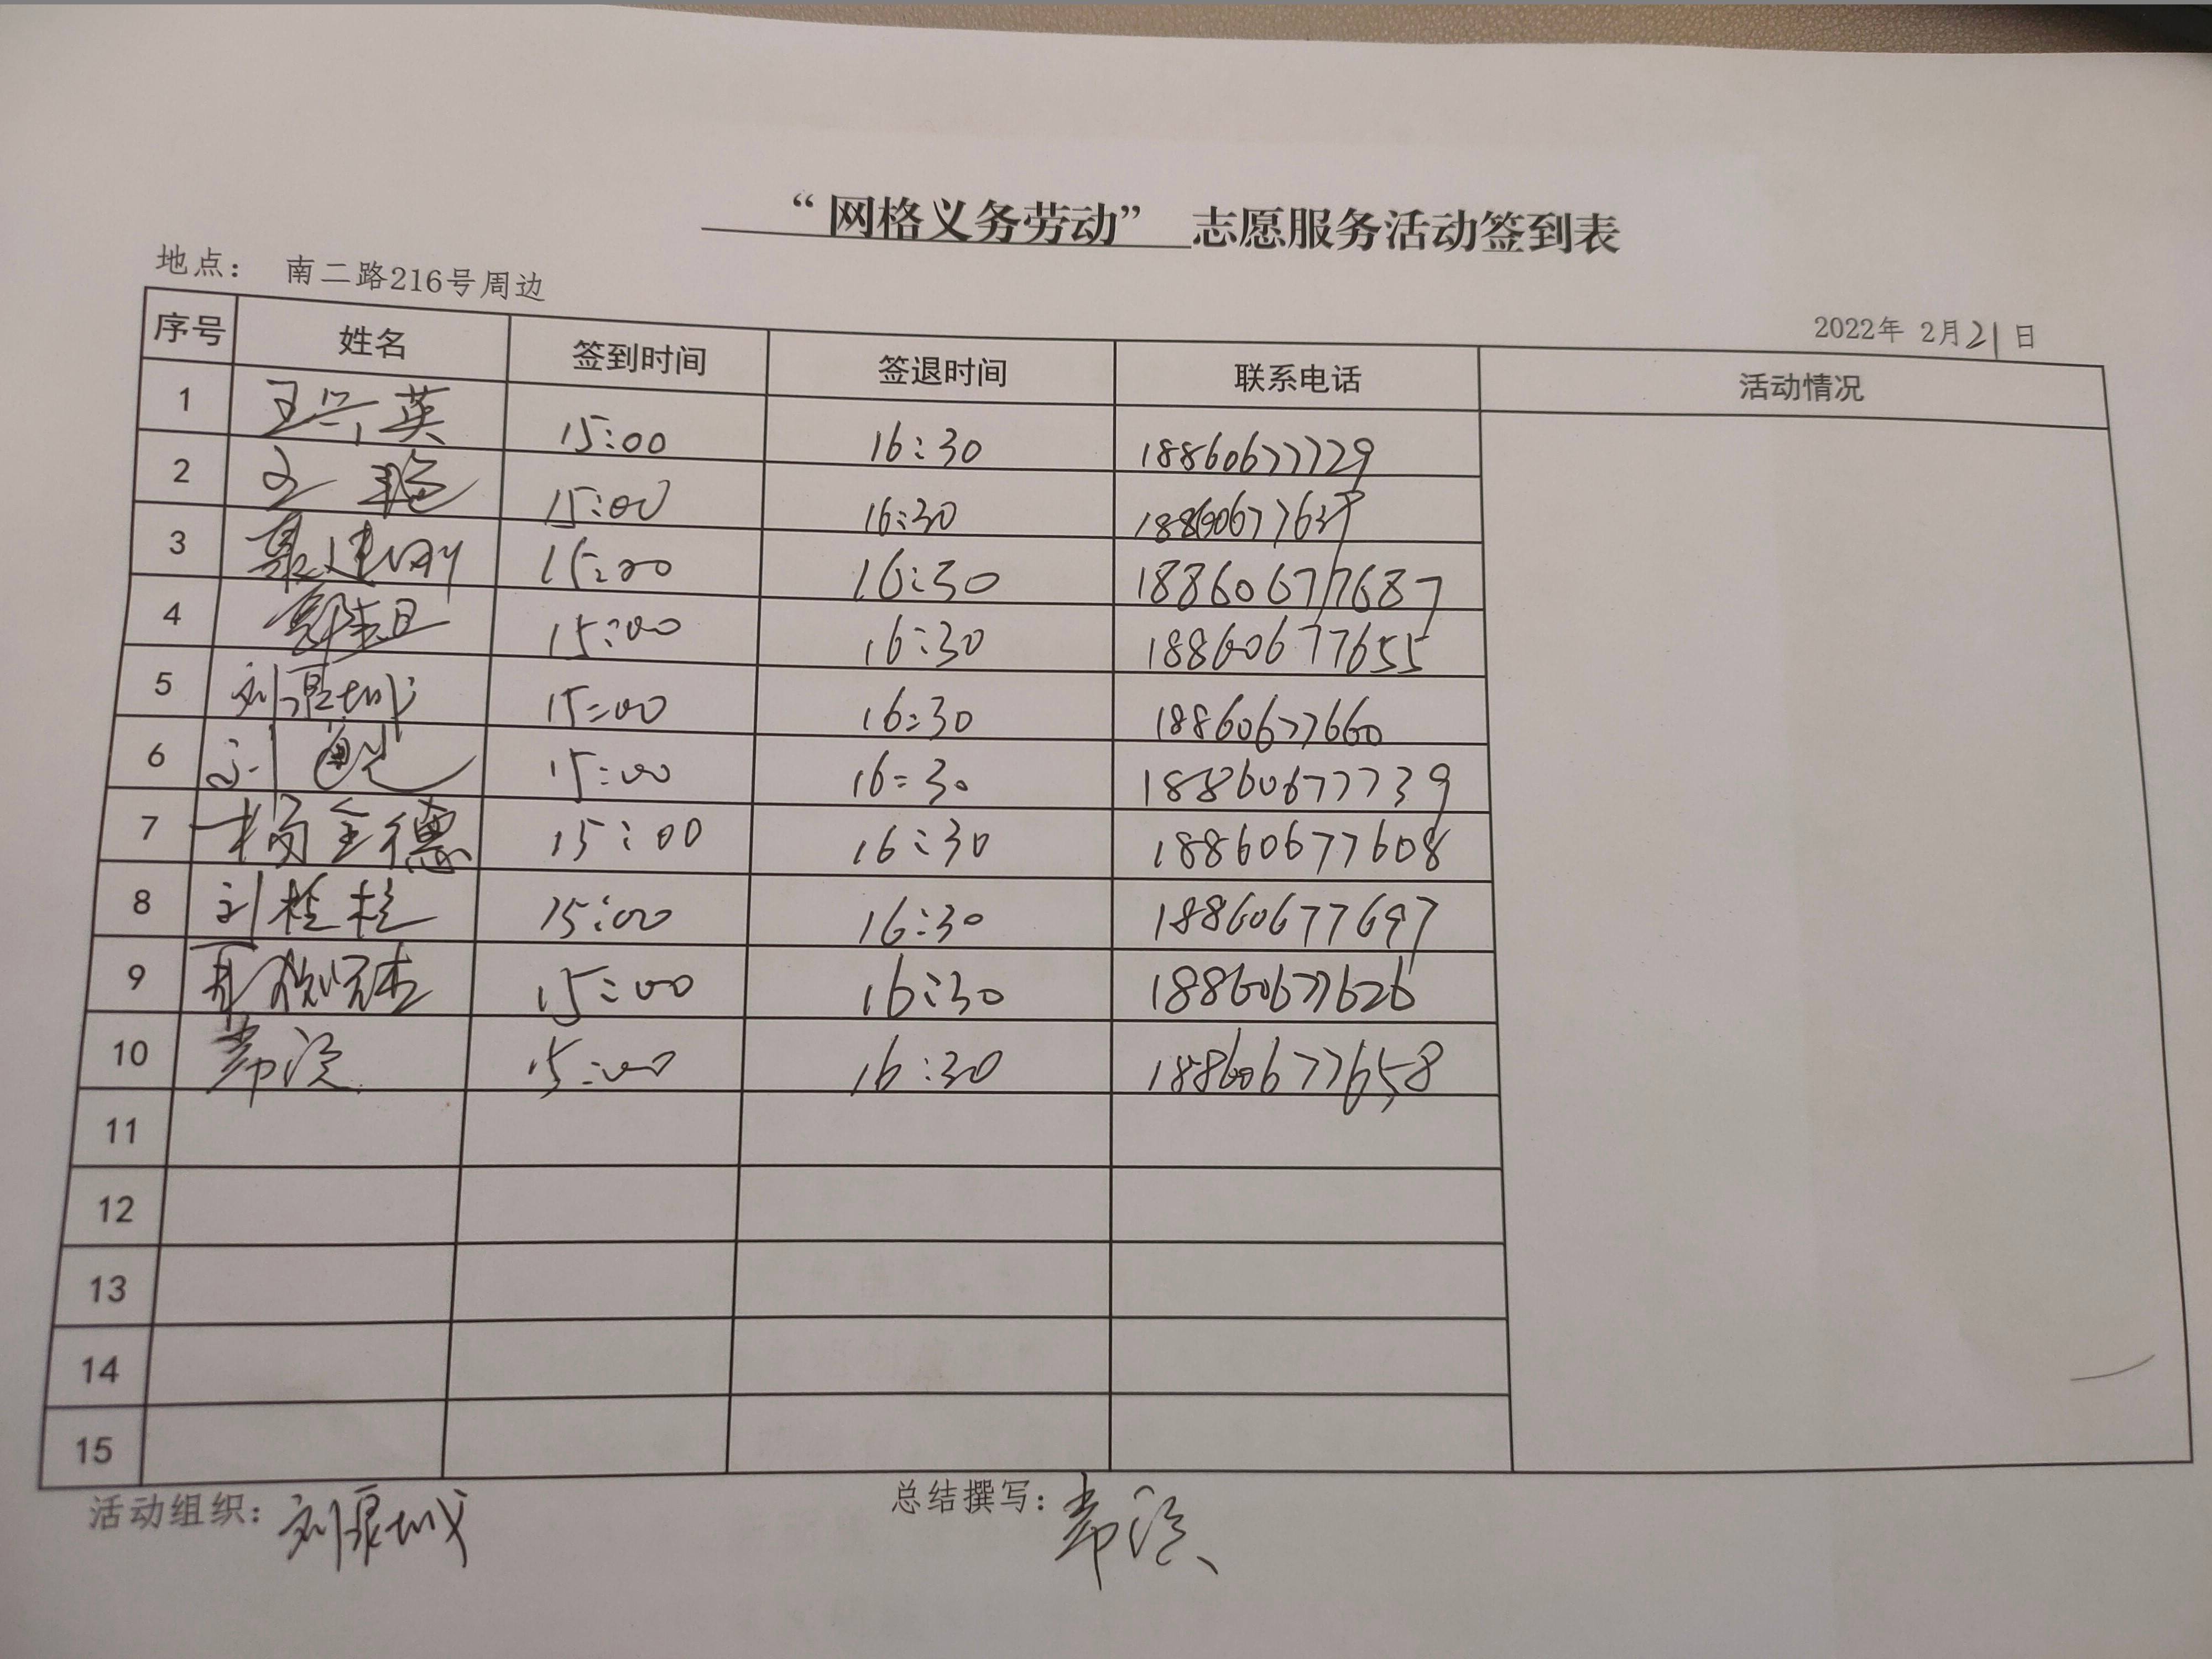 “网格义务劳动” 志愿服务活动签到表
地点： 南二路216号周边
2022年 2月21日
序号 姓名 签到时间 签退时间 联系电话 活动情况
1 王兴英 15:00 16:30 18860677729
2 王艳 15:00 16:30
3 15:00 16:30 18860677687
4 15:00 16:30 18860677655
5 刘 15:00 16:30 18860677660
6 刘 15:00 16:30 18860677739
7 杨全德 15:00 16:30 18860677608
8 刘桂 15:00 16:30 18860677697
9 15:00 16:30 18860677626
10 15:00 16:30 18860677658
11
12
13
14
15
活动组织： 刘 总结撰写：